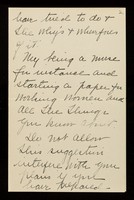 have tried to do &
the Whys & Wherefores
of it.
My being a nurse
for instance and
starting a paper for
working women and
all the things
you know about
Do not allow
this suggestion
interfere with your
plans if you
have prepared